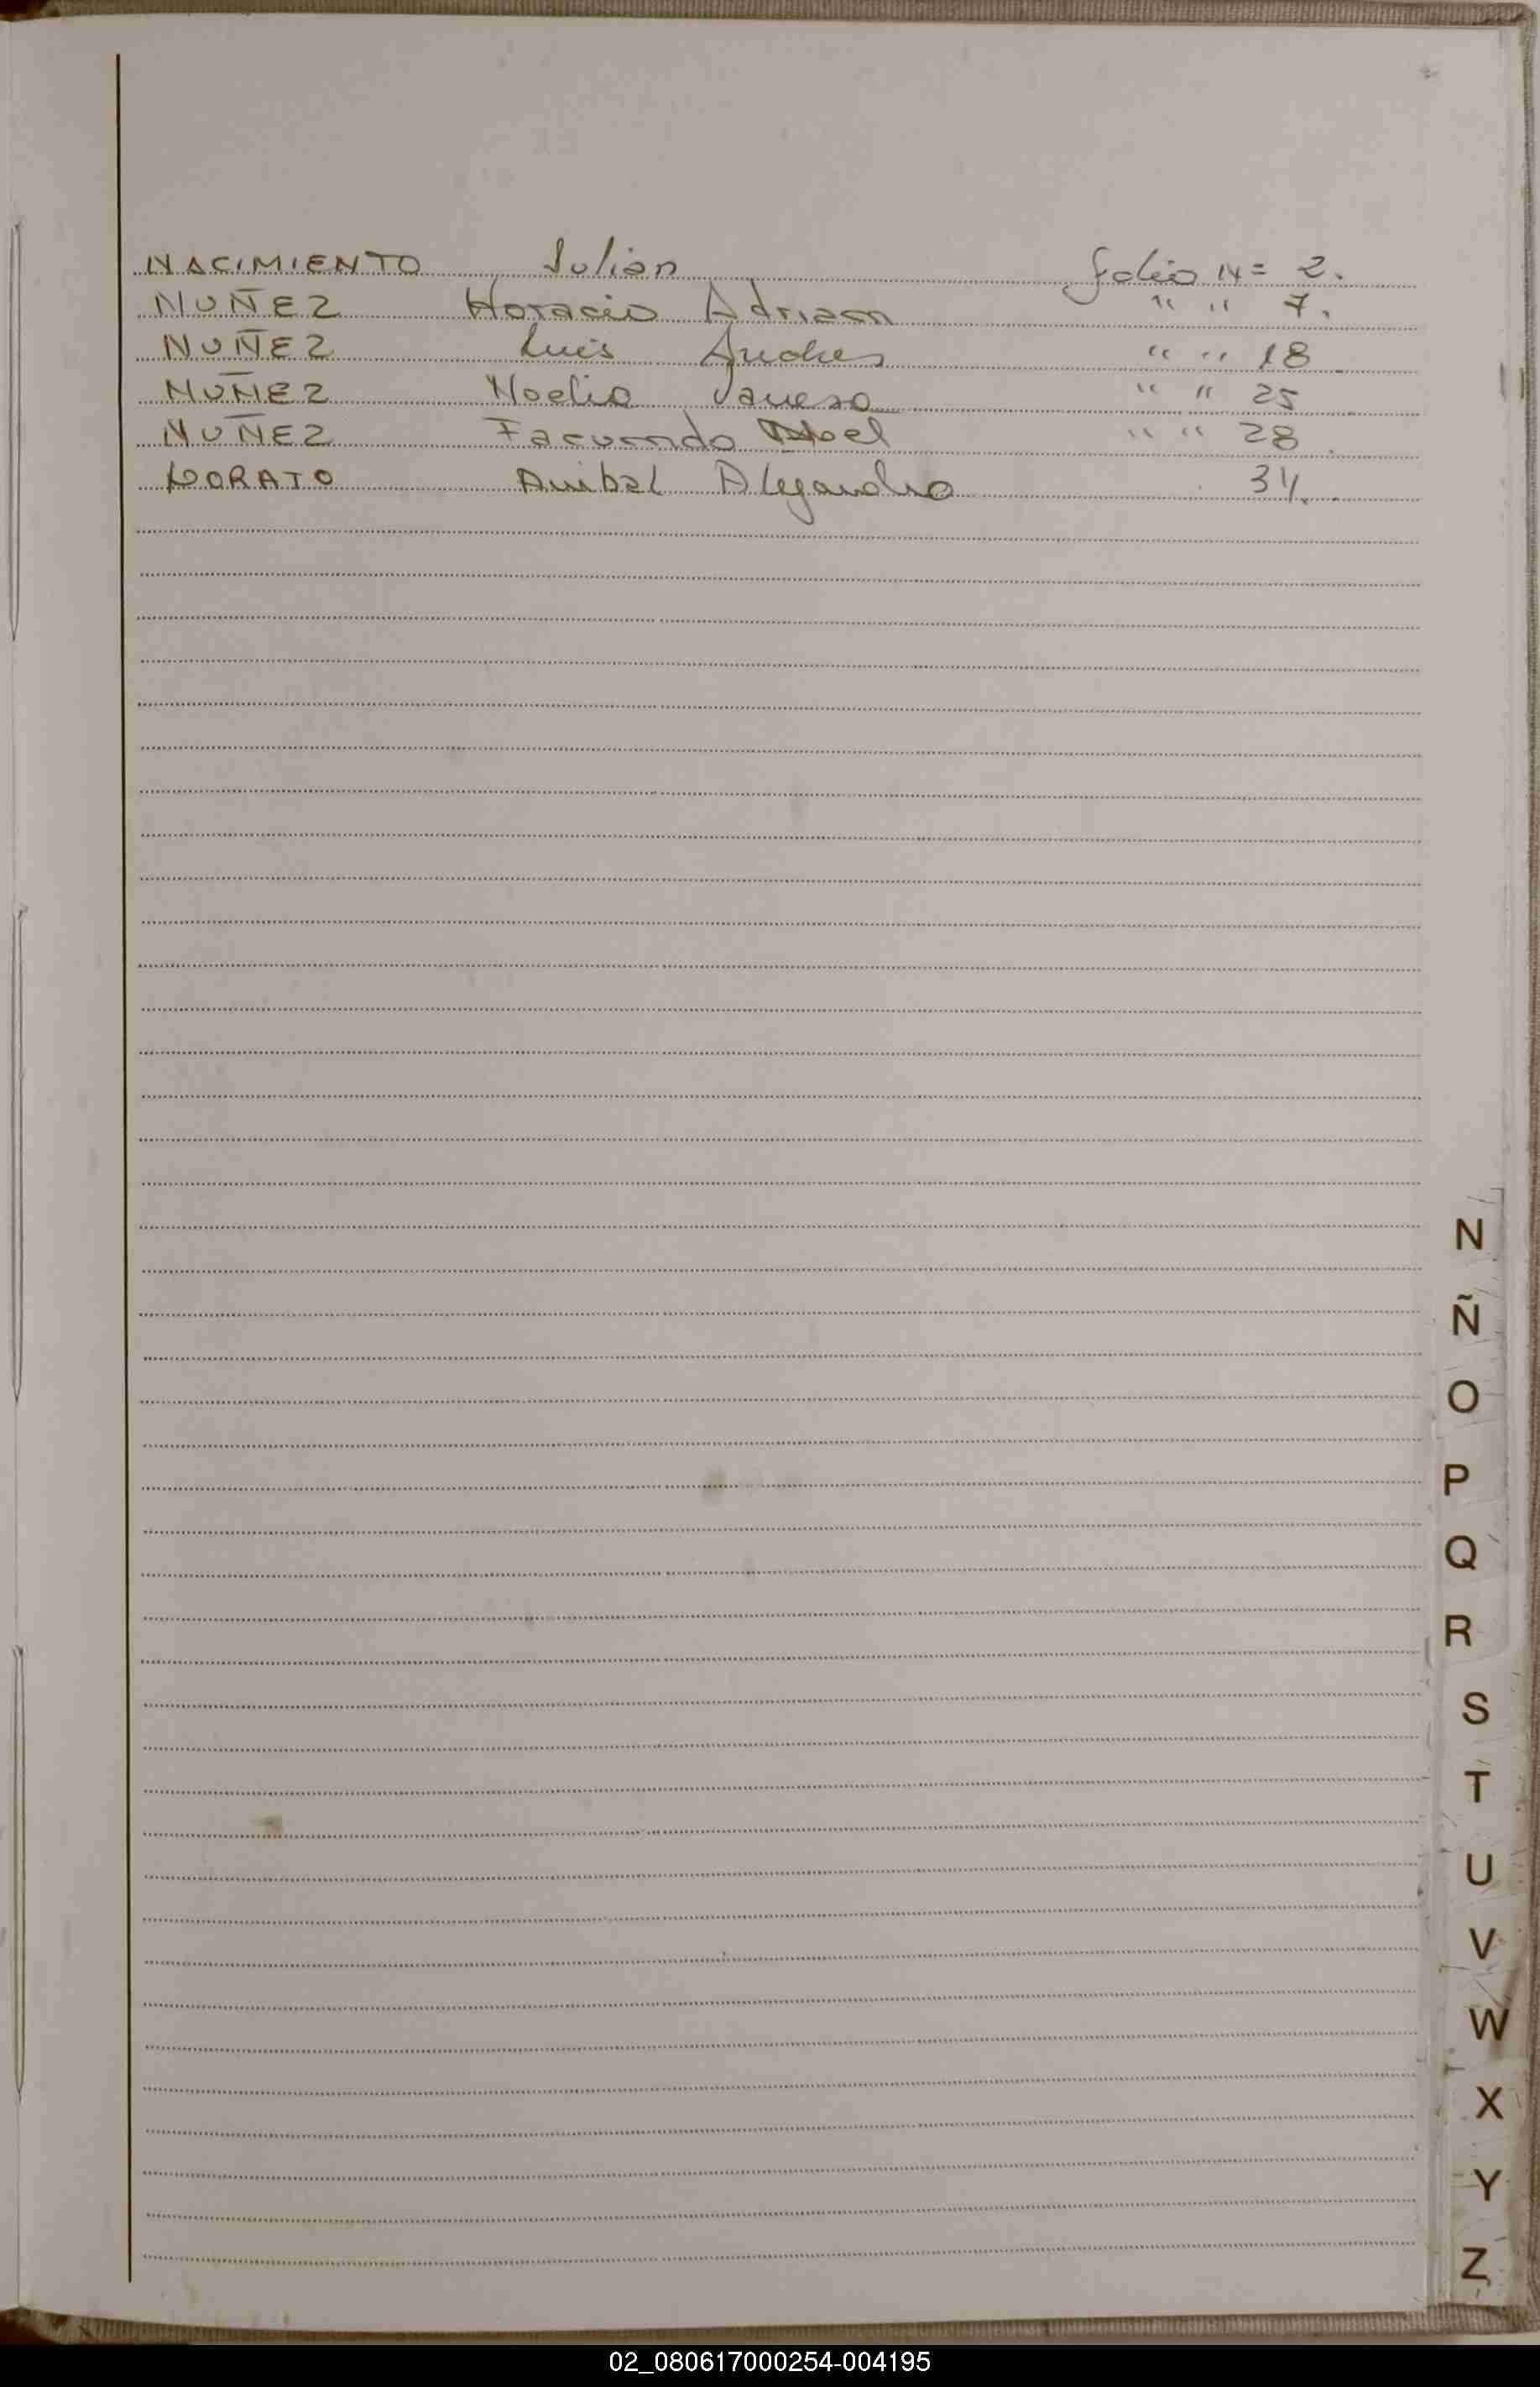 NACIMIENTO Julian folio Nº 2.
NUÑEZ Horacio Adrian " " 7.
NUÑEZ Luis Andres " " 18
NUÑEZ Noelia Vanesa " " 25
NUÑEZ Facundo Abel " " 28
NORATO Anibal Alejandro 34.
N
Ñ
O
P
Q
R
S
T
U
V
W
X
Y
Z
02_080617000254-004195